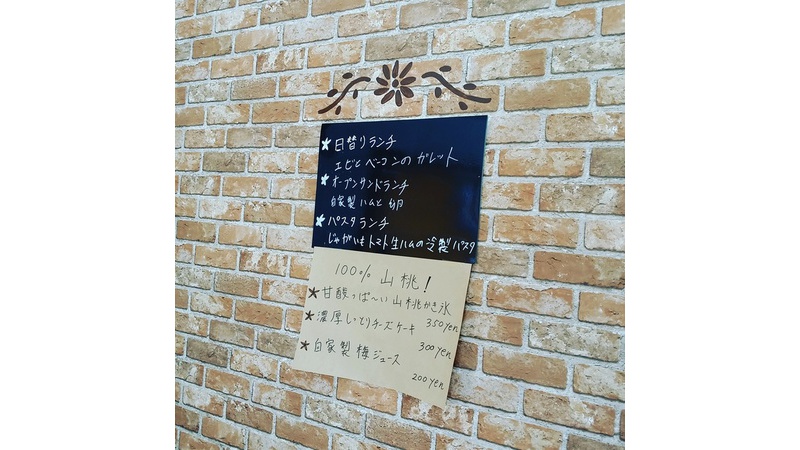 ★日替りランチ
エビとベーコンのガレット
★オープンサンドランチ
自家製ハムと卵
★パスタランチ
じゃがいもトマト生ハムの冷製パスタ
100% 山桃!
★甘酸っぱ〜い山桃かき氷
350yen
★濃厚しっとりチーズケーキ
300yen
★自家製梅ジュース
200yen